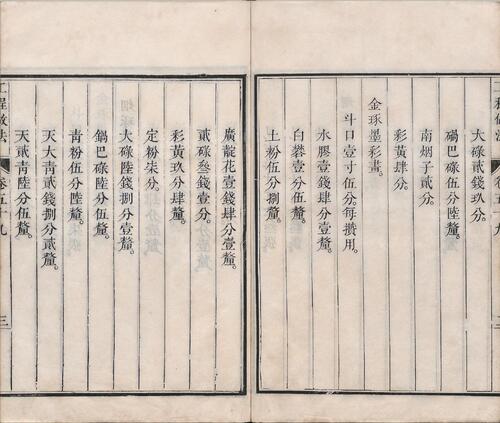 大碌貳錢玖分。
硝巴碌伍分陸釐。
南烟子貳分。
彩黃肆分。
金琢墨彩畫。
斗口壹寸伍分。每攢用。
水膠壹錢肆分壹釐。
白礬壹分伍釐。
土粉伍分捌釐。
廣靛花壹錢肆分壹釐。
貳碌叁錢壹分。
彩黃玖分肆釐。
定粉柒分。
大碌陸錢捌分壹釐。
鍋巴碌陸分伍釐。
青粉伍分陸釐。
天大青貳錢捌分貳釐。
天貳青陸分伍釐。
工程做法 卷五十九 三